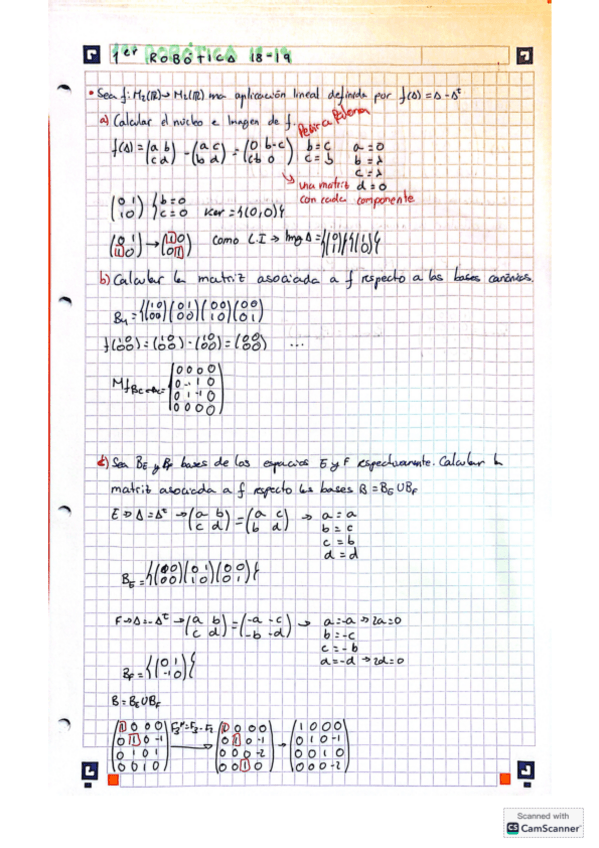 1er ROBÓTICA 18-19
• Sea f: M2(R)→M2(R) una aplicación lineal definida por f(A) = A - A^t
a) Calcular el núcleo e Imagen de f.
f(A) = (a b / c d) - (a c / b d) = (0 b-c / c-b 0) b=c a=0
b=λ
c=λ
una matriz d=0
con cada componente
(0 1 / 1 0) { b=0 / c=0 Ker = {(0,0)}
(0 1 / 1 0) → (1 0 / 0 1) Como L.I → Img A = {(1 0)}{(1 0)}
b) Calcular la matriz asociada a f respecto a las bases canónicas.
Bu = {(1 0 / 0 0)(0 1 / 0 0)(0 0 / 1 0)(0 0 / 0 1)
f(1 0 / 0 0) = (1 0 / 0 0) - (1 0 / 0 0) = (0 0 / 0 0) ...
Mf Bc→Bc = (0 0 0 0 / 0 -1 1 0 / 0 1 -1 0 / 0 0 0 0)
c) Sea BE y BF bases de los espacios E y F respectivamente. Calcular la
matriz asociada a f respecto las bases B = BE U BF
E → A = A^t → (a b / c d) = (a c / b d) → a = a
b = c
c = b
d = d
BE = {(0 0 / 0 0)(0 1 / 1 0)(0 0 / 0 1)}
F → A = -A^t → (a b / c d) = (-a -c / -b -d) → a=-a → 2a=0
b=-c
c=-b
d=-d → 2d=0
BF = {(0 1 / -1 0)}
B = BE U BF
(1 0 0 0 / 0 1 0 -1 / 0 1 0 1 / 0 0 1 0) F3'=F3-F2 → (1 0 0 0 / 0 1 0 -1 / 0 0 0 -2 / 0 0 1 0) → (1 0 0 0 / 0 1 0 -1 / 0 0 1 0 / 0 0 0 -2)
Scanned with
CS CamScanner